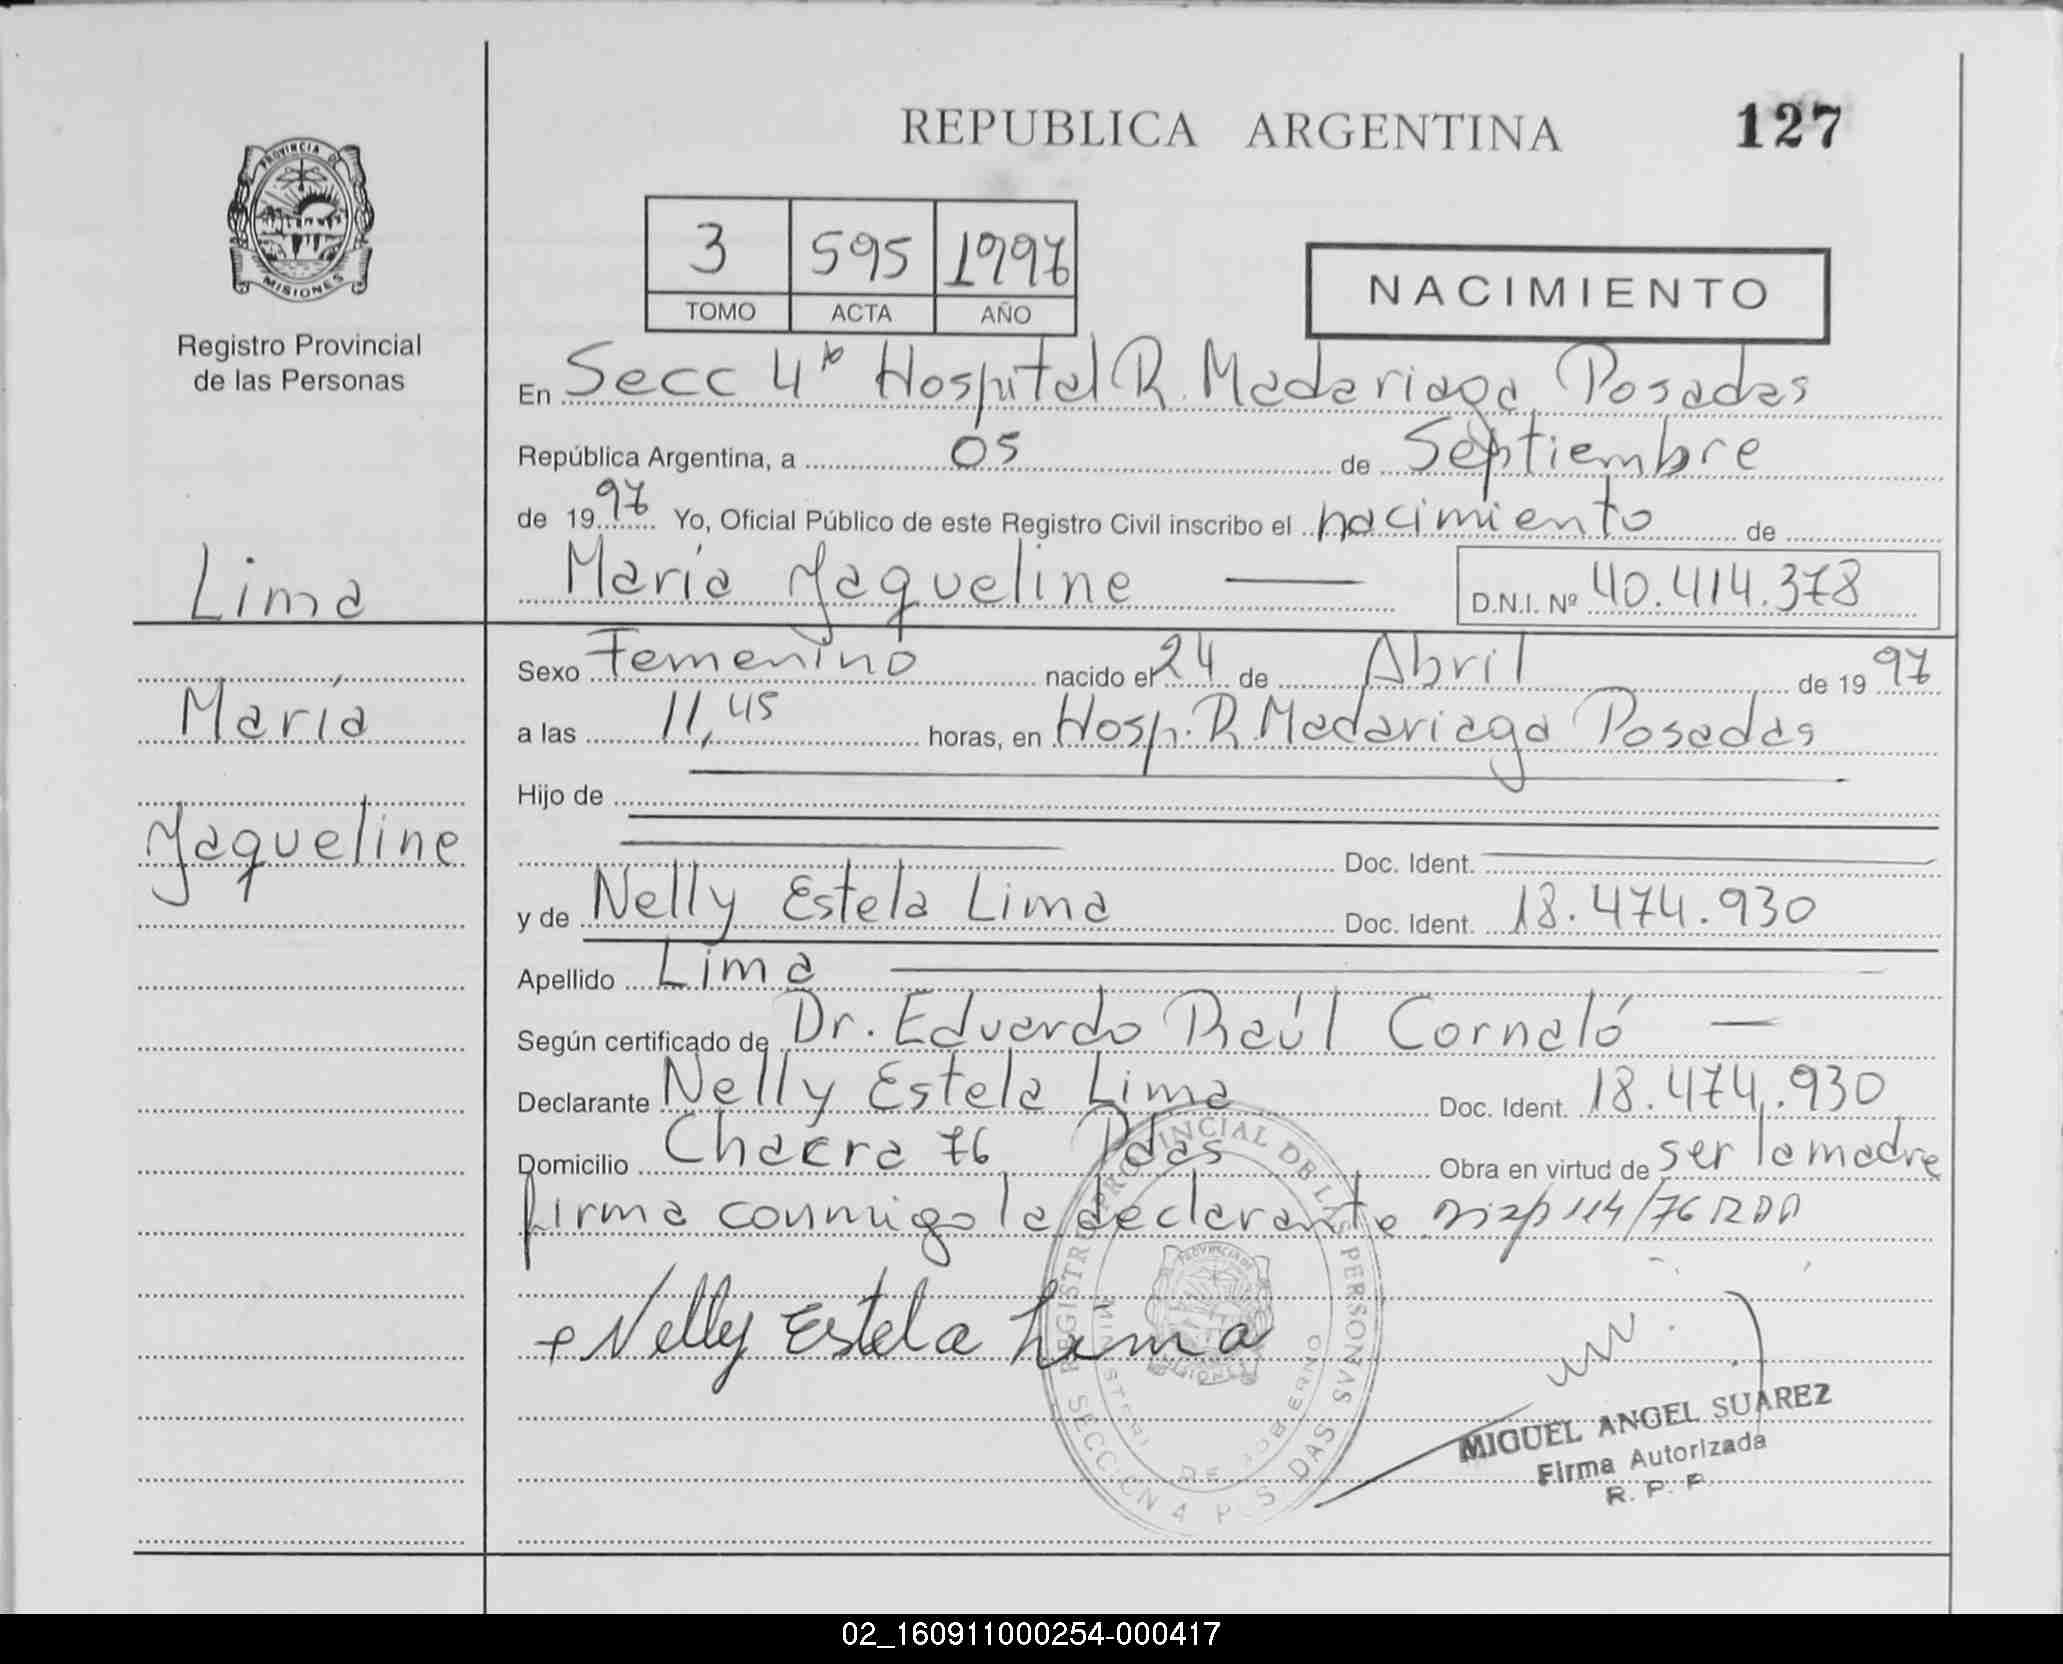 REPUBLICA ARGENTINA
127
PROVINCIA DE
MISIONES
3 595 1997
TOMO ACTA AÑO
NACIMIENTO
Registro Provincial
de las Personas
En Secc 4ª Hospital R. Madariaga Posadas
República Argentina, a 05 de Septiembre
de 1997 Yo, Oficial Público de este Registro Civil inscribo el nacimiento de
María Jaqueline
D.N.I. Nº 40.414.378
Lima
María
Jaqueline
Sexo Femenino nacido el 24 de Abril de 1997
a las 11,45 horas, en Hosp. R. Madariaga Posadas
Hijo de
Doc. Ident.
y de Nelly Estela Lima Doc. Ident. 18.474.930
Apellido Lima
Según certificado de Dr. Eduardo Raúl Cornaló
Declarante Nelly Estela Lima Doc. Ident. 18.474.930
Domicilio Chacra 76 Pdas Obra en virtud de ser la madre
firma conmigo la declarante 114/76
+ Nelly Estela Lima
REGISTRO PROVINCIAL DE LAS PERSONAS
SECCION 4 POSADAS
MINISTERIO DE GOBIERNO
PROVINCIA DE
MISIONES
MIGUEL ANGEL SUAREZ
Firma Autorizada
R. P. P.
02_160911000254-000417